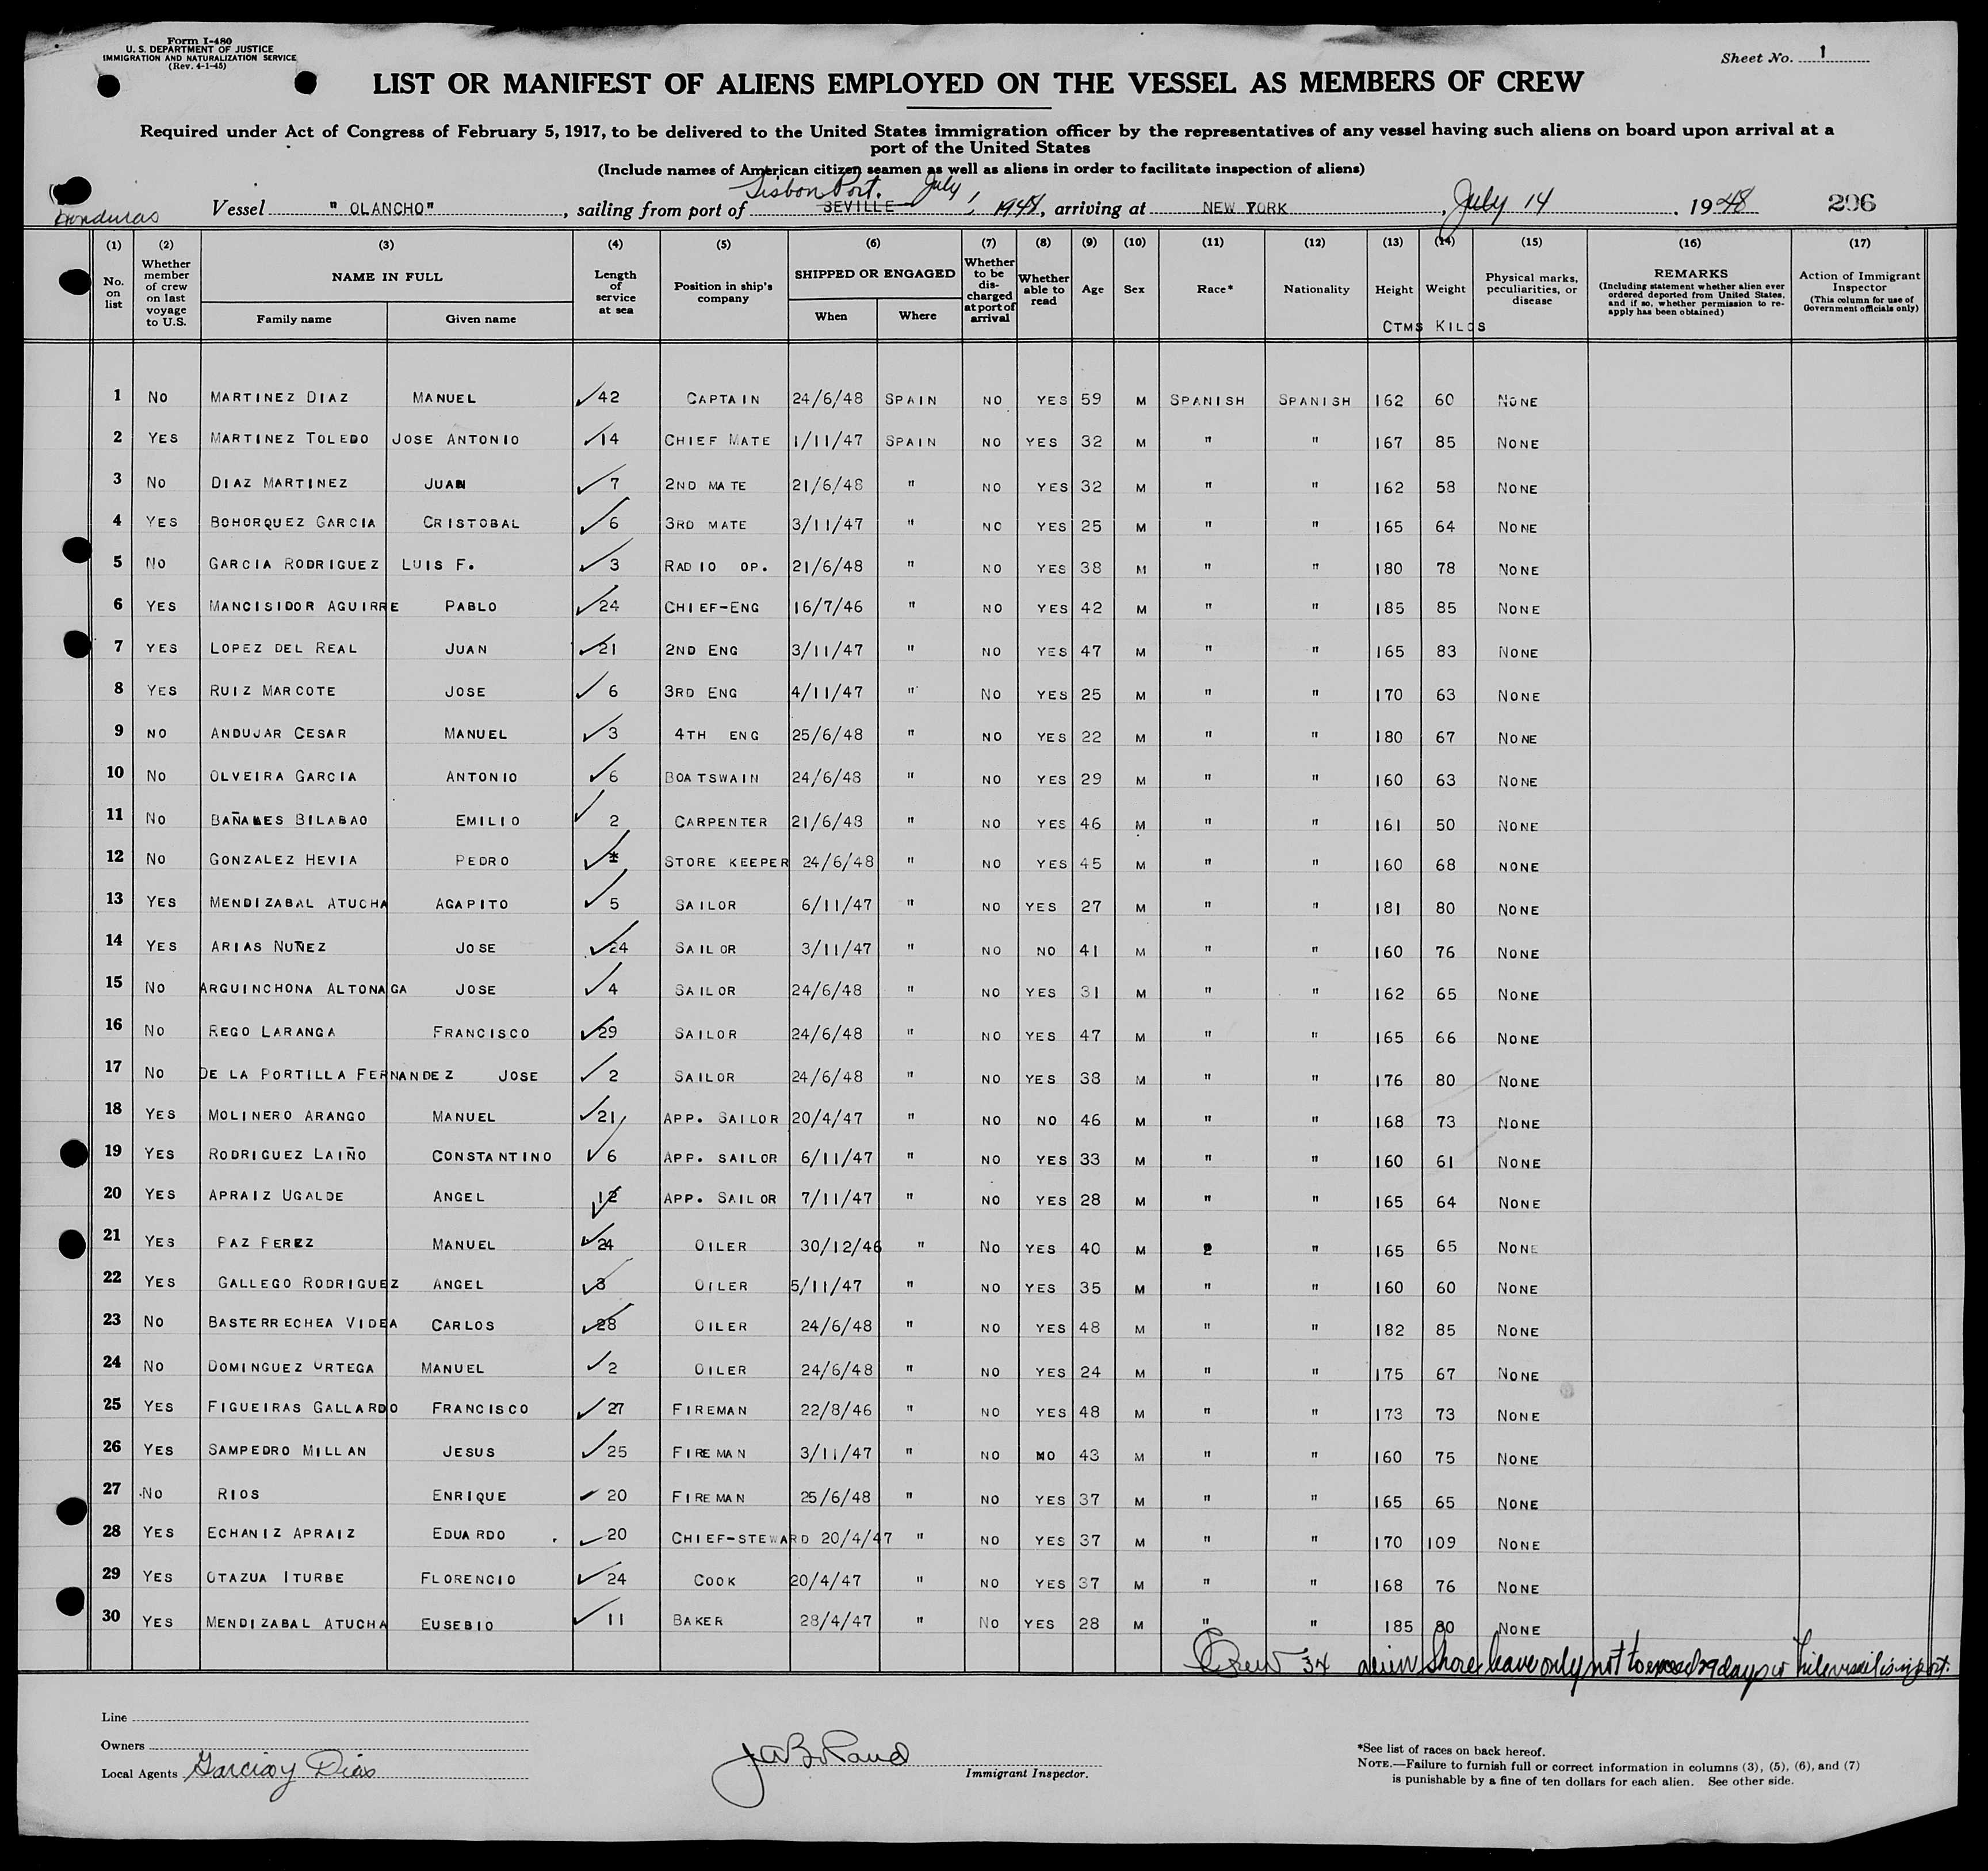 Form I-480
U. S. DEPARTMENT OF JUSTICE
IMMIGRATION AND NATURALIZATION SERVICE
(Rev. 4-1-45)
Sheet No. 1
LIST OR MANIFEST OF ALIENS EMPLOYED ON THE VESSEL AS MEMBERS OF CREW
Required under Act of Congress of February 5, 1917, to be delivered to the United States immigration officer by the representatives of any vessel having such aliens on board upon arrival at a
port of the United States
(Include names of American citizen seamen as well as aliens in order to facilitate inspection of aliens)
Lisbon Port. July
Honduras Vessel " OLANCHO" , sailing from port of SEVILLE 1, 1948, arriving at NEW YORK , July 14 , 1948 296
(1) (2) (3) (4) (5) (6) (7) (8) (9) (10) (11) (12) (13) (14) (15) (16) (17)
No. on list Whether member of crew on last voyage to U.S. NAME IN FULL Family name Given name Length of service at sea Position in ship's company SHIPPED OR ENGAGED When Where Whether to be discharged at port of arrival Whether able to read Age Sex Race* Nationality Height Weight Physical marks, peculiarities, or disease REMARKS (Including statement whether alien ever ordered deported from United States, and if so, whether permission to re-apply has been obtained) Action of Immigrant Inspector (This column for use of Government officials only)
CTMS KILOS
1 NO MARTINEZ DIAZ MANUEL 42 CAPTAIN 24/6/48 SPAIN NO YES 59 M SPANISH SPANISH 162 60 NONE
2 YES MARTINEZ TOLEDO JOSE ANTONIO 14 CHIEF MATE 1/11/47 SPAIN NO YES 32 M " " 167 85 NONE
3 NO DIAZ MARTINEZ JUAN 7 2ND MATE 21/6/48 " NO YES 32 M " " 162 58 NONE
4 YES BOHORQUEZ GARCIA CRISTOBAL 6 3RD MATE 3/11/47 " NO YES 25 M " " 165 64 NONE
5 NO GARCIA RODRIGUEZ LUIS F. 3 RADIO OP. 21/6/48 " NO YES 38 M " " 180 78 NONE
6 YES MANCISIDOR AGUIRRE PABLO 24 CHIEF-ENG 16/7/46 " NO YES 42 M " " 185 85 NONE
7 YES LOPEZ DEL REAL JUAN 21 2ND ENG 3/11/47 " NO YES 47 M " " 165 83 NONE
8 YES RUIZ MARCOTE JOSE 6 3RD ENG 4/11/47 " NO YES 25 M " " 170 63 NONE
9 NO ANDUJAR CESAR MANUEL 3 4TH ENG 25/6/48 " NO YES 22 M " " 180 67 NONE
10 NO OLVEIRA GARCIA ANTONIO 6 BOATSWAIN 24/6/48 " NO YES 29 M " " 160 63 NONE
11 NO BAÑALES BILABAO EMILIO 2 CARPENTER 21/6/48 " NO YES 46 M " " 161 50 NONE
12 NO GONZALEZ HEVIA PEDRO STORE KEEPER 24/6/48 " NO YES 45 M " " 160 68 NONE
13 YES MENDIZABAL ATUCHA AGAPITO 5 SAILOR 6/11/47 " NO YES 27 M " " 181 80 NONE
14 YES ARIAS NUÑEZ JOSE 24 SAILOR 3/11/47 " NO NO 41 M " " 160 76 NONE
15 NO ARGUINCHONA ALTONAGA JOSE 4 SAILOR 24/6/48 " NO YES 31 M " " 162 65 NONE
16 NO REGO LARANGA FRANCISCO 29 SAILOR 24/6/48 " NO YES 47 M " " 165 66 NONE
17 NO DE LA PORTILLA FERNANDEZ JOSE 2 SAILOR 24/6/48 " NO YES 38 M " " 176 80 NONE
18 YES MOLINERO ARANGO MANUEL 21 APP. SAILOR 20/4/47 " NO NO 46 M " " 168 73 NONE
19 YES RODRIGUEZ LAIÑO CONSTANTINO 6 APP. SAILOR 6/11/47 " NO YES 33 M " " 160 61 NONE
20 YES APRAIZ UGALDE ANGEL 12 APP. SAILOR 7/11/47 " NO YES 28 M " " 165 64 NONE
21 YES PAZ PEREZ MANUEL 24 OILER 30/12/46 " NO YES 40 M " 165 65 NONE
22 YES GALLEGO RODRIGUEZ ANGEL 3 OILER 5/11/47 " NO YES 35 M " " 160 60 NONE
23 NO BASTERRECHEA VIDEA CARLOS 28 OILER 24/6/48 " NO YES 48 M " " 182 85 NONE
24 NO DOMINGUEZ ORTEGA MANUEL 2 OILER 24/6/48 " NO YES 24 M " " 175 67 NONE
25 YES FIGUEIRAS GALLARDO FRANCISCO 27 FIREMAN 22/8/46 " NO YES 48 M " " 173 73 NONE
26 YES SAMPEDRO MILLAN JESUS 25 FIREMAN 3/11/47 " NO NO 43 M " " 160 75 NONE
27 NO RIOS ENRIQUE 20 FIREMAN 25/6/48 " NO YES 37 M " " 165 65 NONE
28 YES ECHANIZ APRAIZ EDUARDO 20 CHIEF-STEWARD 20/4/47 " NO YES 37 M " " 170 109 NONE
29 YES OTAZUA ITURBE FLORENCIO 24 COOK 20/4/47 " NO YES 37 M " " 168 76 NONE
30 YES MENDIZABAL ATUCHA EUSEBIO 11 BAKER 28/4/47 " NO YES 28 M " " 185 80 NONE
Crew 34 alien Shore leave only not to exceed 29 days or while vessel is in port.
Line
Owners
Local Agents Garcia y Diaz
Immigrant Inspector.
*See list of races on back hereof.
NOTE.—Failure to furnish full or correct information in columns (3), (5), (6), and (7)
is punishable by a fine of ten dollars for each alien. See other side.